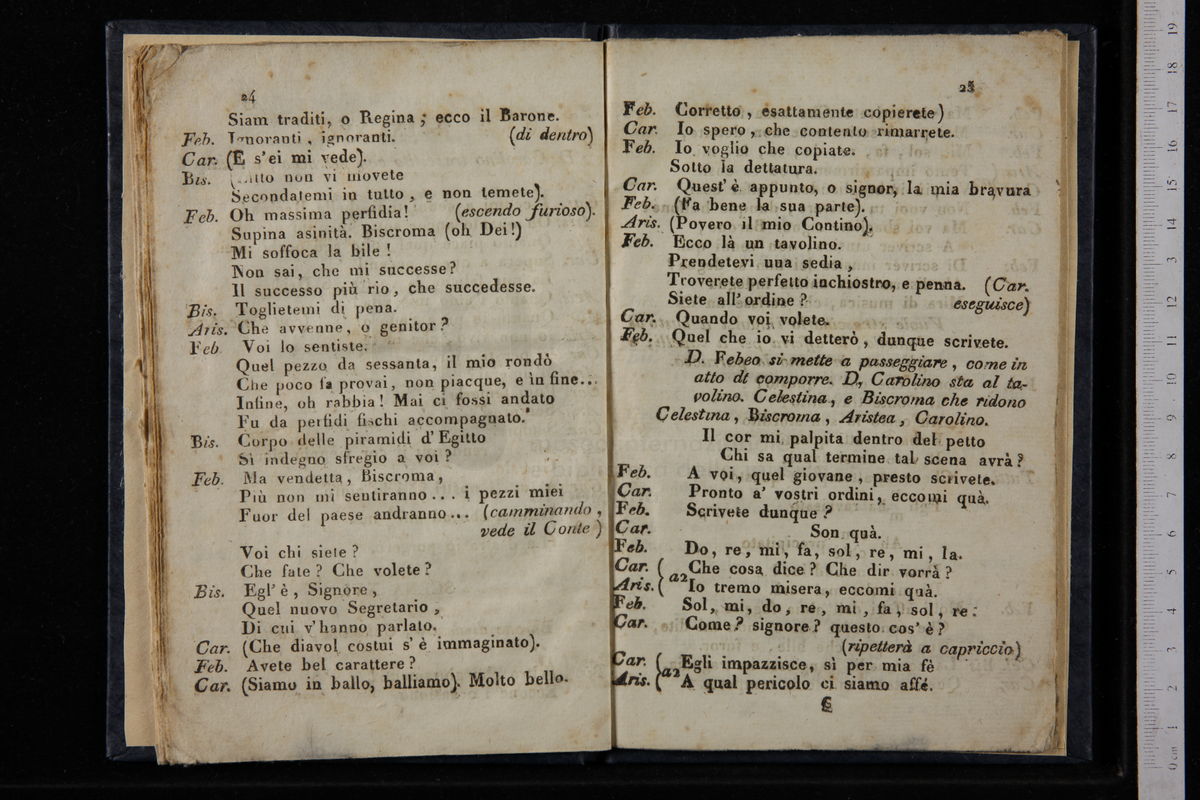 24
Siam traditi, o Regina; ecco il Barone.
Feb. Ignoranti, ignoranti. (di dentro)
Car. (E s'ei mi vede).
Bis. non vi movete
Secondatemi in tutto, e non temete).
Feb. Oh massima perfidia! (escendo furioso).
Supina asinità. Biscroma (oh Dei!)
Mi soffoca la bile!
Non sai, che mi successe?
Il successo più rio, che succedesse.
Bis. Toglietemi di pena.
Aris. Che avvenne, o genitor?
Feb. Voi lo sentiste.
Quel pezzo da sessanta, il mio rondò
Che poco fa provai, non piacque, e in fine...
Infine, oh rabbia! Mai ci fossi andato
Fu da perfidi fischi accompagnato.
Bis. Corpo delle piramidi d'Egitto
Sì indegno sfregio a voi?
Feb. Ma vendetta, Biscroma,
Più non mi sentiranno... i pezzi miei
Fuor del paese andranno... (camminando,
vede il Conte)
Voi chi siete?
Che fate? Che volete?
Bis. Egl'è, Signore,
Quel nuovo Segretario,
Di cui v'hanno parlato.
Car. (Che diavol costui s'è immaginato).
Feb. Avete bel carattere?
Car. (Siamo in ballo, balliamo). Molto bello.
25
Feb. Corretto, esattamente copierete)
Car. Io spero, che contento rimarrete.
Feb. Io voglio che copiate.
Sotto la dettatura.
Car. Quest'è appunto, o signor, la mia bravura
Feb. (Fa bene la sua parte).
Aris. (Povero il mio Contino).
Feb. Ecco là un tavolino.
Prendetevi una sedia,
Troverete perfetto inchiostro, e penna. (Car.
Siete all'ordine? eseguisce)
Car. Quando voi volete.
Feb. Quel che io vi detterò, dunque scrivete.
D. Febeo si mette a passeggiare, come in
atto di comporre. D. Carolino sta al ta-
volino. Celestina, e Biscroma che ridono
Celestina, Biscroma, Aristea, Carolino.
Il cor mi palpita dentro del petto
Chi sa qual termine tal scena avrà?
Feb. A voi, quel giovane, presto scrivete.
Car. Pronto a' vostri ordini, eccomi quà.
Feb. Scrivete dunque?
Car. Son quà.
Feb. Do, re, mi, fa, sol, re, mi, la.
Car. ( a2 Che cosa dice? Che dir vorrà?
Aris. ( Io tremo misera, eccomi quà.
Feb. Sol, mi, do, re, mi, fa, sol, re.
Car. Come? signore? questo cos'è?
(ripetterà a capriccio)
Car. ( a2 Egli impazzisce, sì per mia fè
Aris. ( A qual pericolo ci siamo affé.
C